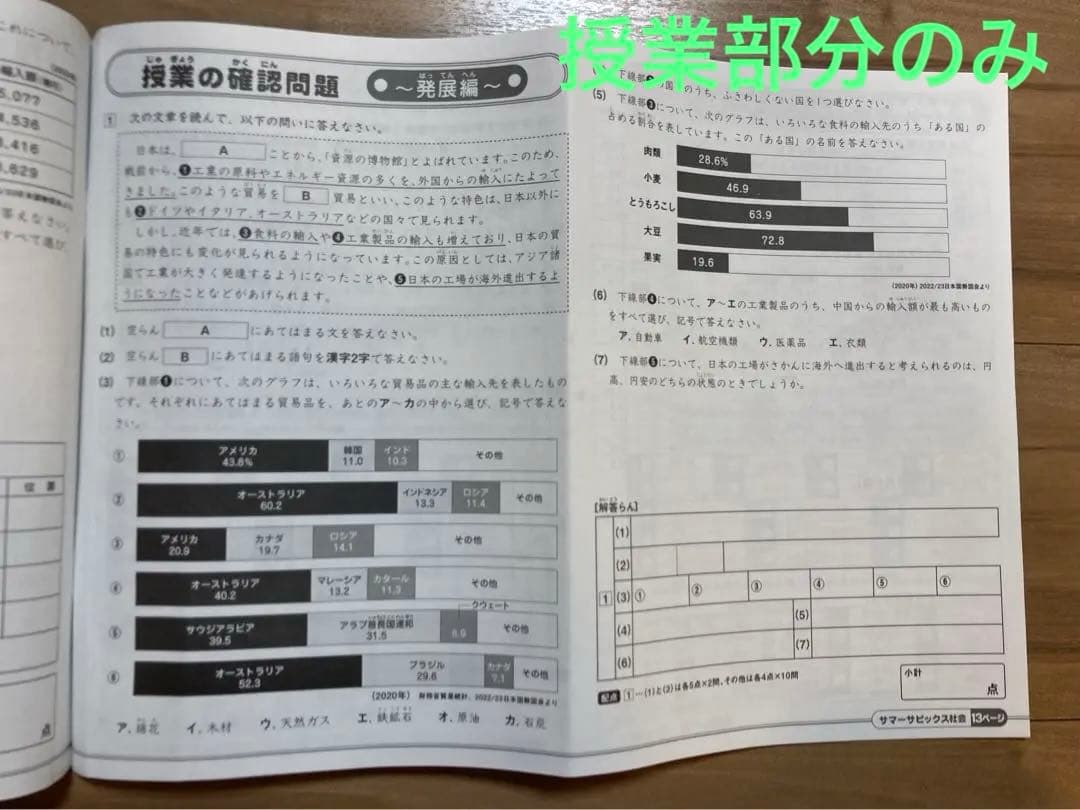 授業部分のみ
これについて、
輸入額
5,077
4,536
3,416
3,629
答えなさい。
すべて選び
位置
点
じゅ ぎょう かく にん
授業の確認問題
はっ てん へん
~発展編~
1 次の文章を読んで、以下の問いに答えなさい。
日本は、 A ことから、「資源の博物館」とよばれています。このため、
戦前から、❶工業の原料やエネルギー資源の多くを、外国からの輸入にたよって
きました。このような貿易を B 貿易といい、このような特色は、日本以外に
も❷ドイツやイタリア、オーストラリアなどの国々で見られます。
しかし、近年では、❸食料の輸入や❹工業製品の輸入も増えており、日本の貿
易の特色にも変化が見られるようになっています。この原因としては、アジア諸
国で工業が大きく発達するようになったことや、❺日本の工場が海外進出するよ
うになったことなどがあげられます。
(1) 空らん A にあてはまる文を答えなさい。
(2) 空らん B にあてはまる語句を漢字2字で答えなさい。
(3) 下線部❶について、次のグラフは、いろいろな貿易品の主な輸入先を表したもの
です。それぞれにあてはまる貿易品を、あとのア~カの中から選び、記号で答えな
さい。
① アメリカ 43.8% 韓国 11.0 インド 10.3 その他
② オーストラリア 60.2 インドネシア 13.3 ロシア 11.4 その他
③ アメリカ 20.9 カナダ 19.7 ロシア 14.1 その他
④ オーストラリア 40.2 マレーシア 13.2 カタール 11.3 その他
クウェート
⑤ サウジアラビア 39.5 アラブ首長国連邦 31.5 8.9 その他
⑥ オーストラリア 52.3 ブラジル 29.6 カナダ 7.1 その他
(2020年) 財務省貿易統計、2022/23日本国勢図会より
ア、綿花 イ、木材 ウ、天然ガス エ、鉄鉱石 オ、原油 カ、石炭
のうち、ふさわしくない国を1つ選びなさい。
(5) 下線部❸について、次のグラフは、いろいろな食料の輸入先のうち「ある国」の
占める割合を表しています。この「ある国」の名前を答えなさい。
肉類 28.6%
小麦 46.9
とうもろこし 63.9
大豆 72.8
果実 19.6
(2020年) 2022/23日本国勢図会より
(6) 下線部❹について、ア~エの工業製品のうち、中国からの輸入額が最も高いもの
をすべて選び、記号で答えなさい。
ア、自動車 イ、航空機類 ウ、医薬品 エ、衣類
(7) 下線部❺について、日本の工場がさかんに海外へ進出すると考えられるのは、円
高、円安のどちらの状態のときでしょうか。
[解答らん]
1
(1)
(2)
(3) ① ② ③ ④ ⑤ ⑥
(4) (5)
(6) (7)
配点 1…(1)と(2)は各5点×2問、その他は各4点×10問
小計
点
サマーサピックス社会 13ページ